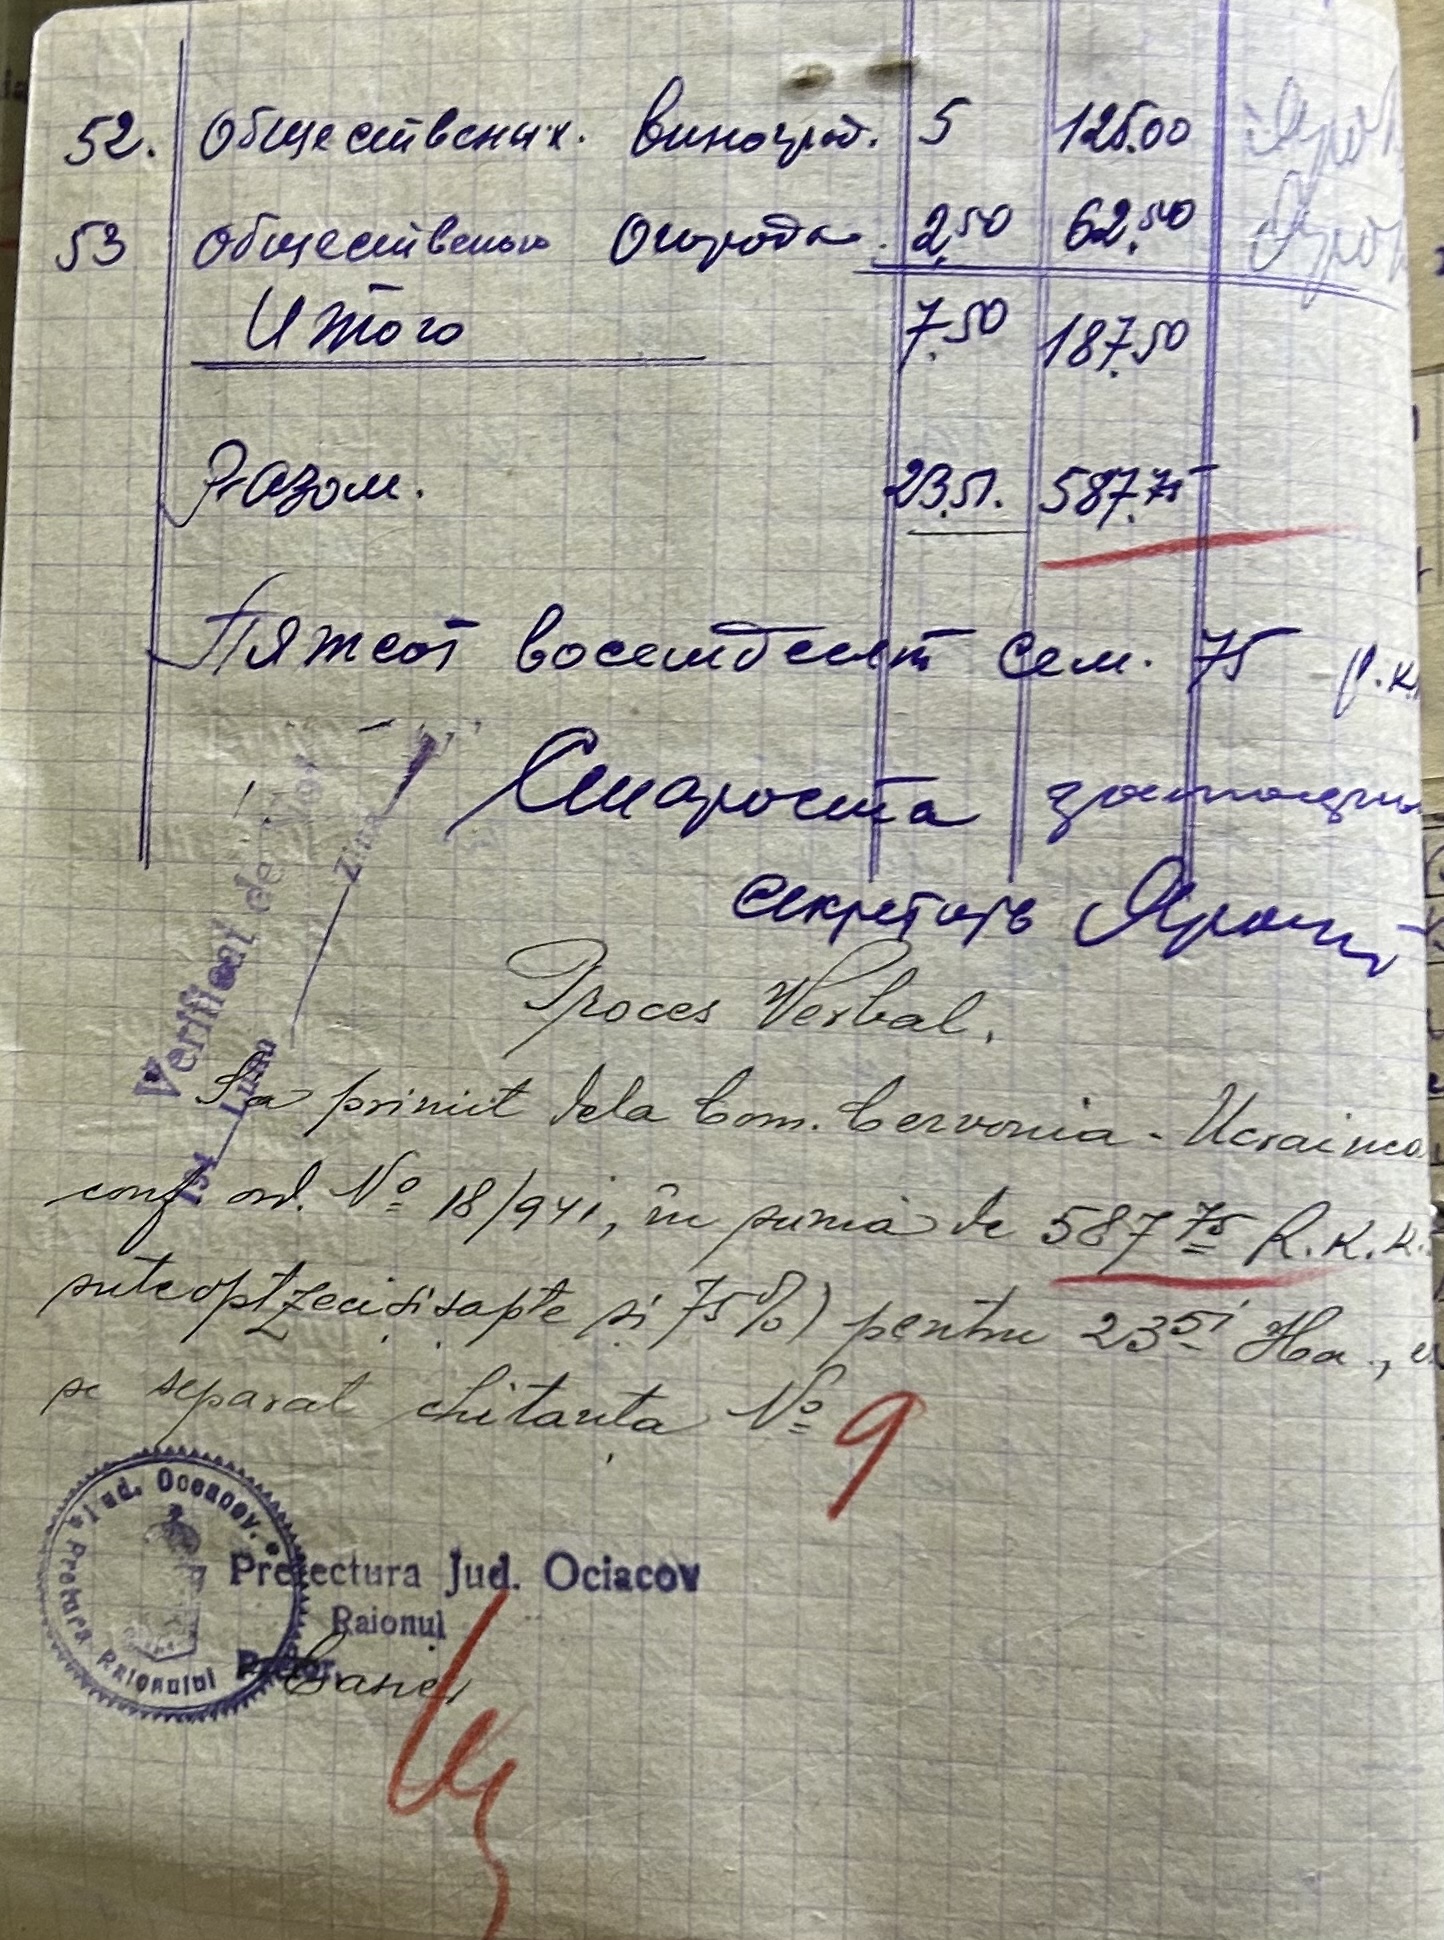 52. Общественых. виноград. 5 125.00
53 Общественого Огорода. 2,50 62.50
Итого 7.50 187.50
Разом. 23.51. 587.75
Пятсот восемдесят сем. 75 р.к.
Староста
секретарь
Proces Verbal.
Sa primit dela Com. Cervonia - Ucrainca
conf. ord. Nº 18/941, în suma de 587 75 R.K.K.
suteoptzecisisapte si 75%) pentru 23 51 Ha.,
se separat chitanta Nº 9
Verificat de
Ziua
Luna
194
Jud. Oceacov.
Pretura Raionului
Prefectura Jud. Ociacov
Raionul
Pretor,